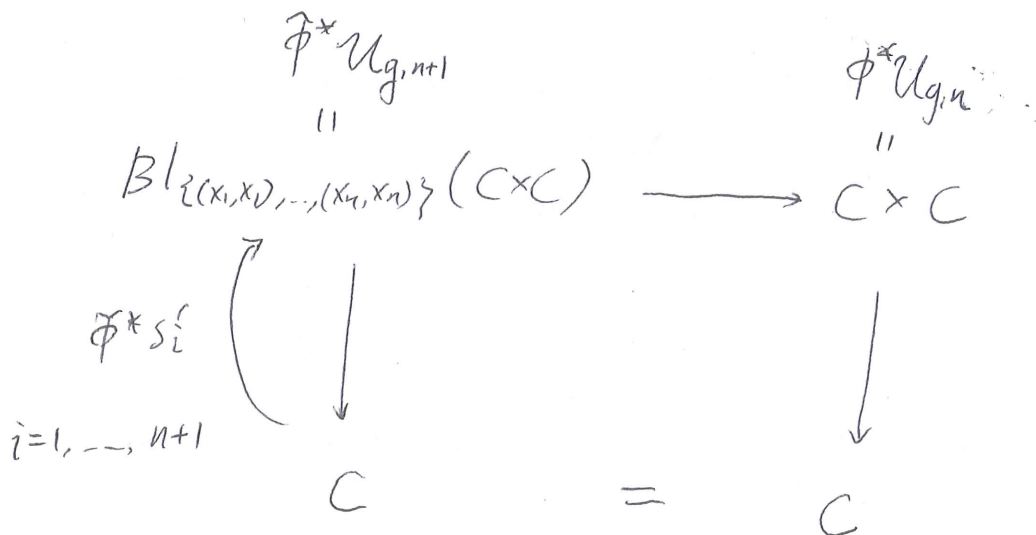 φ̃* U_{g,n+1}    φ* U_{g,n}
=    =
Bl_{{(x₁,x₁),...,(xₙ,xₙ)}}(C×C) → C × C
φ̃* s'_i
i=1, ..., n+1
C = C